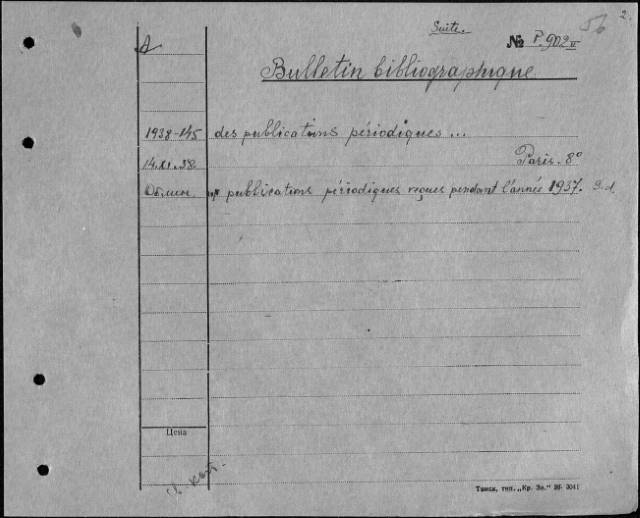 2.
56
Suite.
№ P.902 II
A
Bulletin bibliographique
1938-145 des publications périodiques...
14.XI.38 Paris. 8°
Обмен publications périodiques reçues pendant l'année 1937. S.d.
Цена
кат.
Томск, тип. „Кр. Зн." № 3041